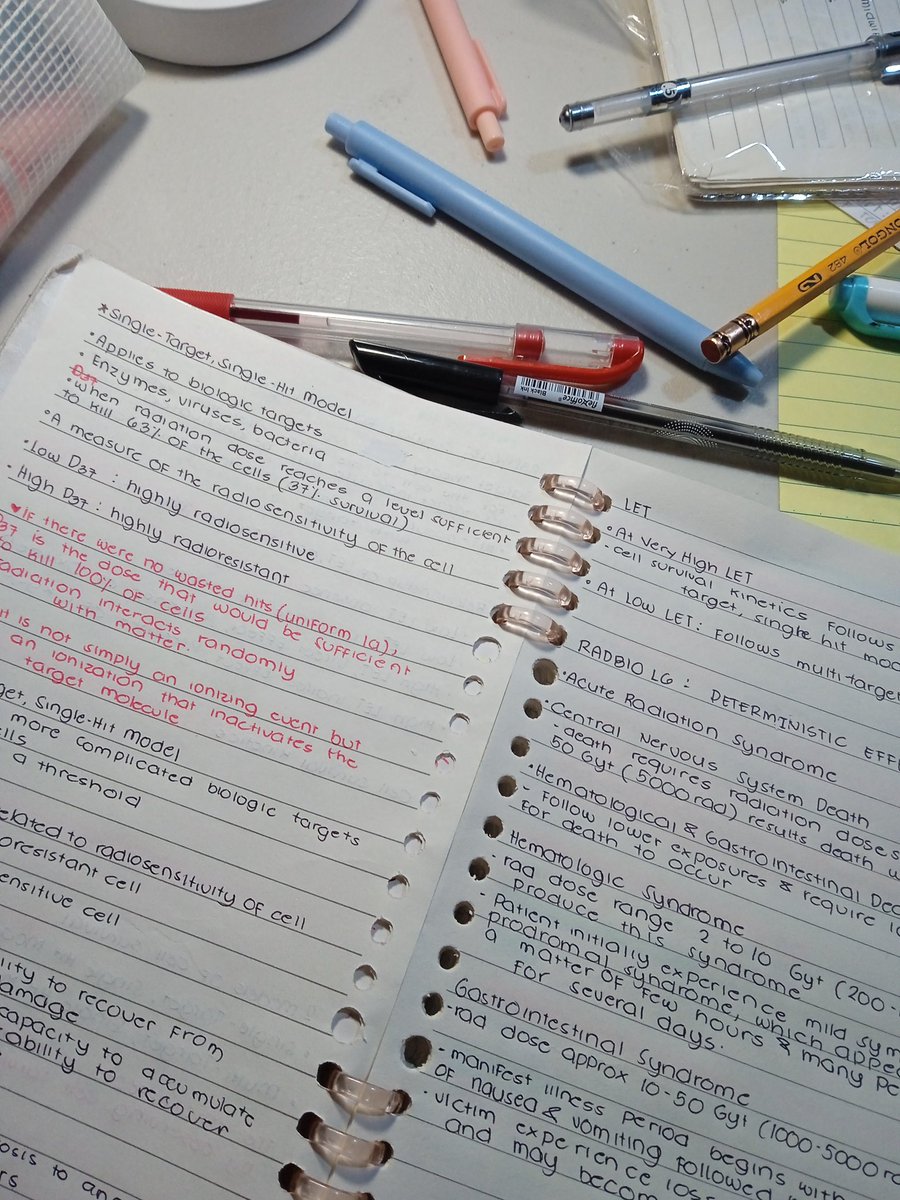 *Single-Target, Single-Hit model
•Applies to biologic targets
• Enzymes, viruses, bacteria
D37
•When radiation dose reaches a level sufficient
to kill 63% of the cells (37% survival)
•A measure of the radiosensitivity of the cell
•Low D37 : highly radiosensitive
•High D37 : highly radioresistant
♥If there were no wasted hits (uniform 1a),
D37 is the dose that would be sufficient
to kill 100% of cells
radiation interacts randomly
with matter.
is not simply an ionizing event but
an ionization that inactivates the
target molecule
Single-Hit model
more complicated biologic targets
a threshold
related to radiosensitivity of cell
cell
cell
to recover from
damage
capacity to accumulate
ability to recover
to
LET
•At very High LET
- cell survival kinetics follows
target, single hit
•At Low LET: Follows
RADBIO L6 : DETERMINISTIC
•Acute Radiation Syndrome
•Central Nervous System Death
- death requires radiation
50 Gyt (5000rad) results death
•Hematological & Gastrointestinal
- Follow lower exposures & require
for death to occur
Hematologic Syndrome
- rad dose range 2 to 10 Gyt (200-
produce this syndrome
- Patient initially experience mild
prodromal syndrome, which
a matter of few hours & many
for several days.
Gastrointestinal Syndrome
-rad dose approx 10-50 Gyt (1000-5000
-manifest illness period begins
of nausea & vomiting followed
-victim experience
and may
flexoffice
Black Ink
.5
MONGOL 482 2